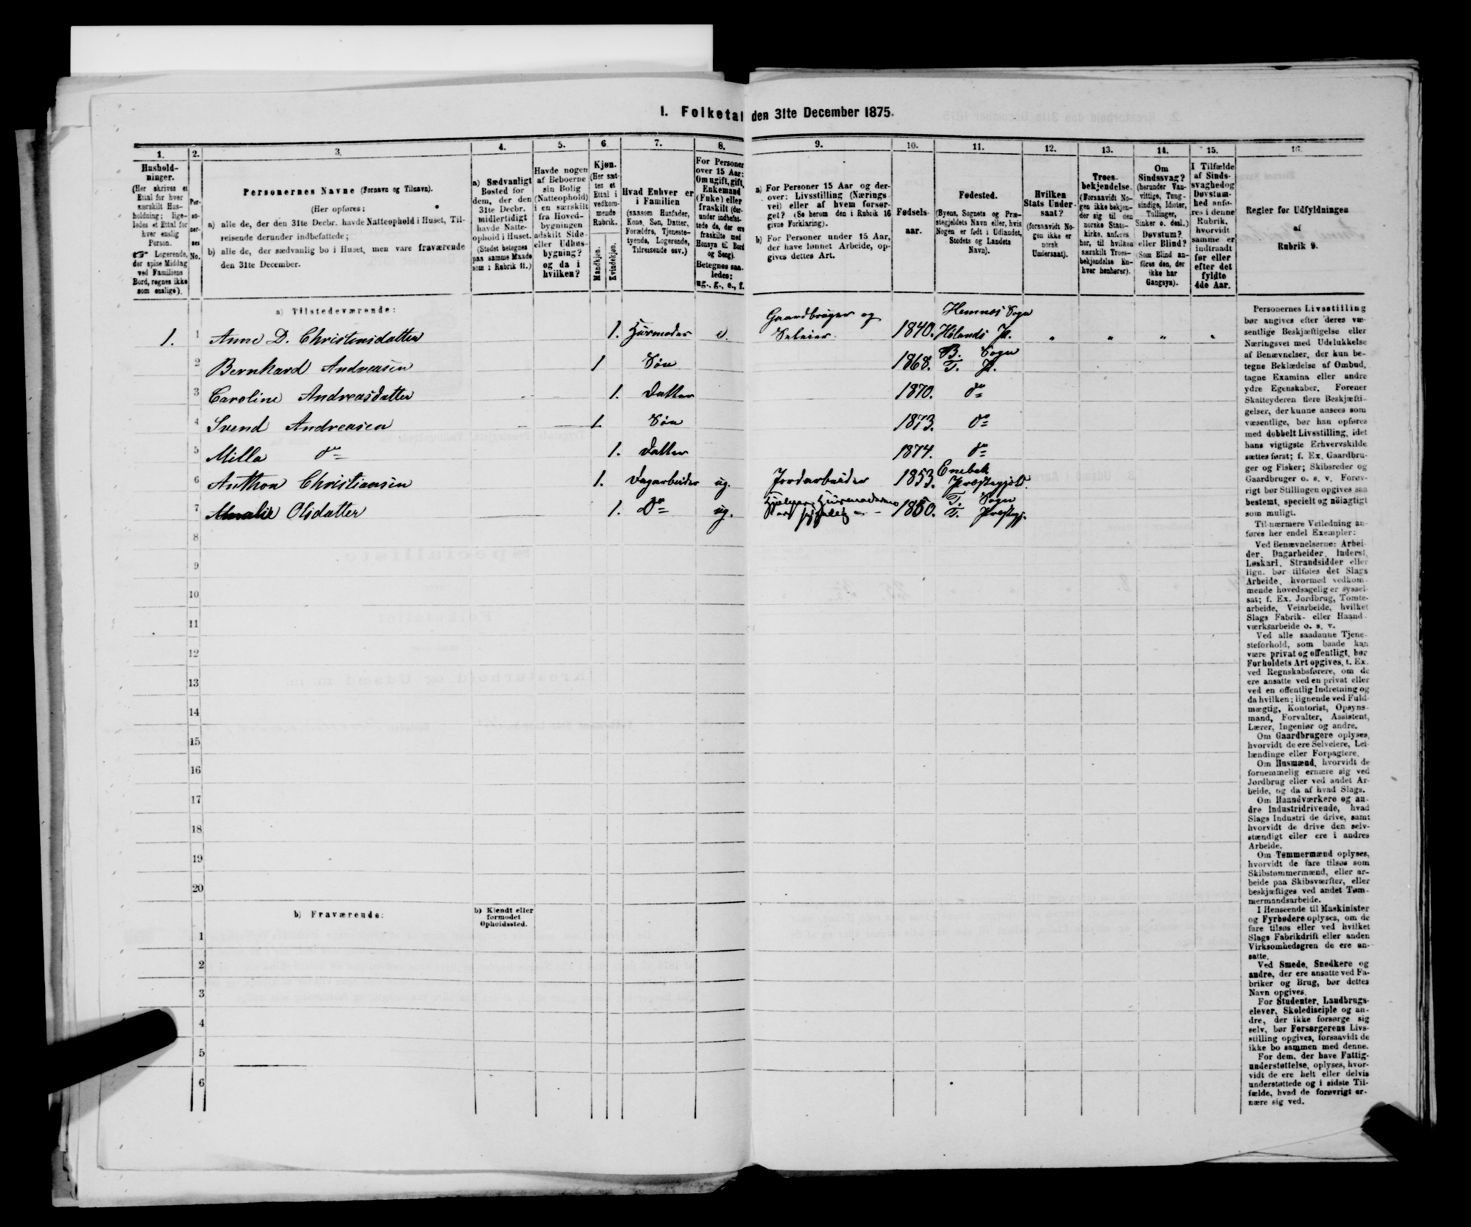 1. Folketal den 31te December 1875.
1. 2. 3. 4. 5. 6. 7. 8. 9. 10. 11. 12. 13. 14. 15. 16.
Hushold-
ninger.
(Her skrives et
Ettal for hver
særskilt Hus-
holdning; lige-
ledes et Ettal for
hver enslig
Person.
☞ Logerende,
der spise Middag
ved Familiens
Bord, regnes ikke
som enslige).
Per-
so-
ner-
nes
No.
Personernes Navne (Fornavn og Tilnavn).
(Her opføres:
a) alle de, der den 31te Decbr. havde Natteophold i Huset, Til-
reisende derunder indbefattede;
b) alle de, der sædvanlig bo i Huset, men vare fraværende
den 31te December.
a) Sædvanligt
Bosted for
dem, der den
31te Decbr.
midlertidigt
havde Natte-
ophold i Huset.
(Stedet betegnes
paa samme Maade
som i Rubrik 11.)
Havde nogen
af Beboerne
sin Bolig
(Natteophold)
i en særskilt
fra Hoved-
bygningen
adskilt Side-
eller Udhus-
bygning?
og da i
hvilken?
Kjøn.
(Her sæt-
tes et
Ettal i
vedkom-
mende
Rubrik.)
Mandkjøn. Kvindekjøn.
Hvad Enhver er
i Familien
(saasom Husfader,
Kone, Søn, Datter,
Forældre, Tjeneste-
tyende, Logerende,
Tilreisende osv.)
For Personer
over 15 Aar:
Om ugift, gift,
Enkemand
(Enke) eller
fraskilt (der-
under indbefat-
tede de, der ere
fraskilte med
Hensyn til Bord
og Seng).
Betegnes saa-
ledes:
ug., g., e., f.
a) For Personer 15 Aar og der-
over: Livsstilling (Nærings-
vei) eller af hvem forsør-
get? (Se herom den i Rubrik 16
givne Forklaring).
b) For Personer under 15 Aar,
der have lønnet Arbeide, op-
gives dettes Art.
Fødsels-
aar.
Fødested.
(Byens, Sognets og Præ-
stegjeldets Navn eller, hvis
Nogen er født i Udlandet,
Stedets og Landets
Navn).
Hvilken
Stats Under-
saat?
(forsaavidt No-
gen ikke er
norsk
Undersaat).
Troes-
bekjendelse.
(Forsaavidt No-
gen ikke bekjen-
der sig til den
norske Stats-
kirke, anføres
her, til hvilken
særskilt Troes-
bekjendelse En-
hver henhører).
Om
Sindssvag?
(herunder Van-
vittige, Tung-
sindige, Idioter,
Tullinger,
Sinker o. desl.)
Døvstum?
eller Blind?
(Som Blind an-
føres den, der
ikke har
Gangsyn).
I Tilfælde
af Sinds-
svaghed og
Døvstum-
hed anfø-
res i denne
Rubrik,
hvorvidt
samme er
indtraadt
før eller
efter det
fyldte
4de Aar.
Regler for Udfyldningen
af
Rubrik 9.
a) Tilstedeværende:
1. 1 Anne D. Christiansdatter 1. Husmoder e. Gaardbruger og Seleier. 1840. Hemnæs Sogn Hølands P.
2 Bernhard Andreasen 1 Søn 1868. B. Sogn T. P.
3 Caroline Andreasdatter 1. Datter 1870. do
4 Svend Andreasen 1. Søn 1873. do
5 Milla do 1. Datter 1874. do
6 Anthon Christiansen 1. Dagarbeider ug. Jordarbeider 1853. Enebak Præstegjeld.
7 Olsdatter 1. Do ug. Hjelper Huusmoderen 1850. T. Sogn T. Præstgj.
8
9
10
11
12
13
14
15
16
17
18
19
20
b) Fraværende:
b) Kjendt eller
formodet
Opholdssted.
1
2
3
4
5
6
Personernes Livsstilling
bør angives efter deres væ-
sentlige Beskjæftigelse eller
Næringsvei med Udelukkelse
af Benævnelser, der kun be-
tegne Beklædelse af Ombud,
tagne Examina eller andre
ydre Egenskaber. Forener
Skatteyderen flere Beskjæfti-
gelser, der kunne ansees som
væsentlige, bør han opføres
med dobbelt Livsstilling, idet
hans vigtigste Erhvervskilde
sættes først; f. Ex. Gaardbru-
ger og Fisker; Skibsreder og
Gaardbruger o. s. v. Forøv-
rigt bør Stillingen opgives saa
bestemt, specielt og nøiagtigt
som muligt.
Til nærmere Veiledning an-
føres her endel Exempler:
Ved Benævnelserne: Arbei-
der, Dagarbeider, Inderst,
Løskarl, Strandsidder eller
lign. bør tilføies det Slags
Arbeide, hvormed vedkom-
mende hovedsagelig er syssel-
sat; f. Ex. Jordbrug, Tomte-
arbeide, Veiarbeide, hvilket
Slags Fabrik- eller Haand-
værksarbeide o. s. v.
Ved alle saadanne Tjene-
steforhold, som baade kan
være privat og offentligt, bør
Forholdets Art opgives, t. Ex.
ved Regnskabsførere, om de
ere ansatte ved en privat eller
ved en offentlig Indretning og
da hvilken; lignende ved Fuld-
mægtig, Kontorist, Opsyns-
mand, Forvalter, Assistent,
Lærer, Ingeniør og andre.
Om Gaardbrugere oplyses,
hvorvidt de ere Selveiere, Lei-
lændinge eller Forpagtere.
Om Husmænd, hvorvidt de
fornemmelig ernære sig ved
Jordbrug eller ved andet Ar-
beide, og da af hvad Slags.
Om Haandværkere og an-
dre Industridrivende, hvad
Slags Industri de drive, samt
hvorvidt de drive den selv-
stændigt eller ere i andres
Arbeide.
Om Tømmermænd oplyses,
hvorvidt de fare tilsøs som
Skibstømmermænd, eller ar-
beide paa Skibsværfter, eller
beskjæftiges ved andet Tøm-
mermandsarbeide.
I Henseende til Maskinister
og Fyrbødere oplyses, om de
fare tilsøs eller ved hvilket
Slags Fabrikdrift eller anden
Virksomhedsgren de ere an-
satte.
Ved Smede, Snedkere og
andre, der ere ansatte ved Fa-
briker og Brug, bør dettes
Navn opgives.
For Studenter, Landbrugs-
elever, Skoledisciple og an-
dre, der ikke forsørge sig
selv, bør Forsørgerens Livs-
stilling opgives, forsaavidt de
ikke bo sammen med denne.
For dem, der have Fattig-
understøttelse, oplyses, hvor-
vidt de ere helt eller delvis
understøttede og i sidste Til-
fælde, hvad de forøvrigt er-
nære sig ved.